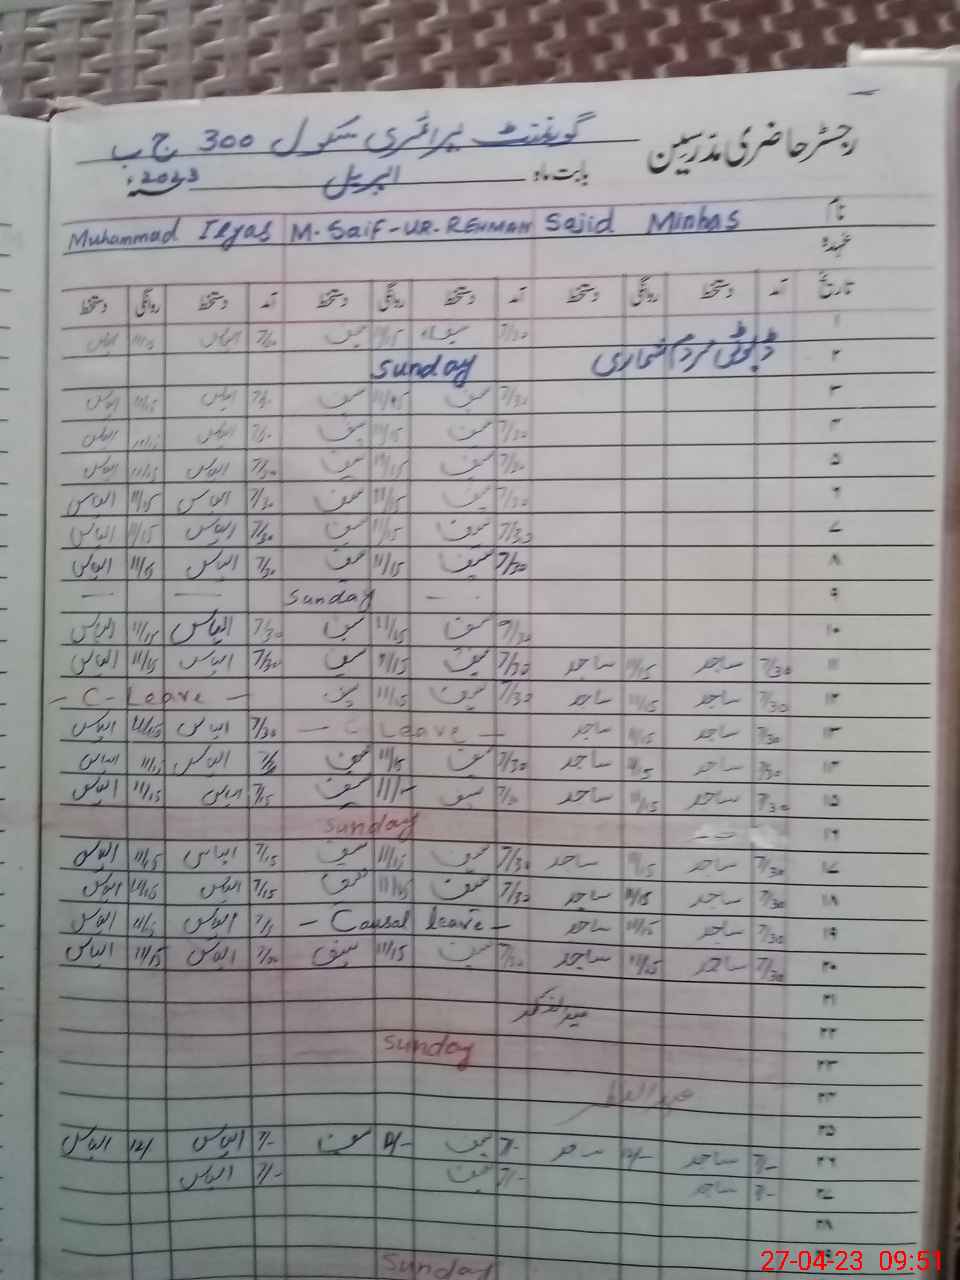 رجسٹر حاضری مدرسین گورنمنٹ پرائمری سکول 300 ج ب
بابت ماہ اپریل 2023ء
نام Sajid Minhas M. Saif-UR-REHMAN Muhammad Ilyas
عہدہ
تاریخ آمد دستخط روانگی دستخط آمد دستخط روانگی دستخط آمد دستخط روانگی دستخط
۱ 7/30 سیف 11/15 سیف 7/30 الیاس 11/15 الیاس
۲ ڈیوٹی مردم شماری Sunday
۳ 7/30 سیف 11/15 سیف 7/30 الیاس 11/15 الیاس
۴ 7/30 سیف 11/15 سیف 7/30 الیاس 11/15 الیاس
۵ 7/30 سیف 11/15 سیف 7/30 الیاس 11/15 الیاس
۶ 7/30 سیف 11/15 سیف 7/30 الیاس 11/15 الیاس
۷ 7/30 سیف 11/15 سیف 7/30 الیاس 11/15 الیاس
۸ 7/30 سیف 11/15 سیف 7/30 الیاس 11/15 الیاس
۹ Sunday
۱۰ 7/30 سیف 11/15 سیف 7/30 الیاس 11/15 الیاس
۱۱ 7/30 ساجد 11/15 ساجد 7/30 سیف 11/15 سیف 7/30 الیاس 11/15 الیاس
۱۲ 7/30 ساجد 11/15 ساجد 7/30 سیف 11/15 سیف - C-Leave -
۱۳ 7/30 ساجد 11/15 ساجد - C Leave - 7/30 الیاس 11/15 الیاس
۱۴ 7/30 ساجد 11/15 ساجد 7/30 سیف 11/15 سیف 7/30 الیاس 11/15 الیاس
۱۵ 7/30 ساجد 11/15 ساجد سیف 11/- سیف 7/15 الیاس 11/15 الیاس
۱۶ Sunday
۱۷ 7/30 ساجد 11/15 ساجد 7/30 سیف 11/15 سیف 7/15 الیاس 11/15 الیاس
۱۸ 7/30 ساجد 11/15 ساجد 7/30 سیف 11/15 سیف 7/15 الیاس 11/15 الیاس
۱۹ 7/30 ساجد 11/15 ساجد - Causal leave - الیاس 11/15 الیاس
۲۰ 7/30 ساجد 11/15 ساجد 7/30 سیف 11/15 سیف 7/30 الیاس 11/15 الیاس
۲۱
۲۲ عیدالفطر
۲۳ Sunday
۲۴
۲۵ عیدالفطر
۲۶ 7/- ساجد 12/- ساجد 7/- سیف 12/- سیف 7/- الیاس 12/ الیاس
۲۷ 7/- ساجد 7/- سیف 7/- الیاس
۲۸
۲۹
Sunday
27-04-23 09:51